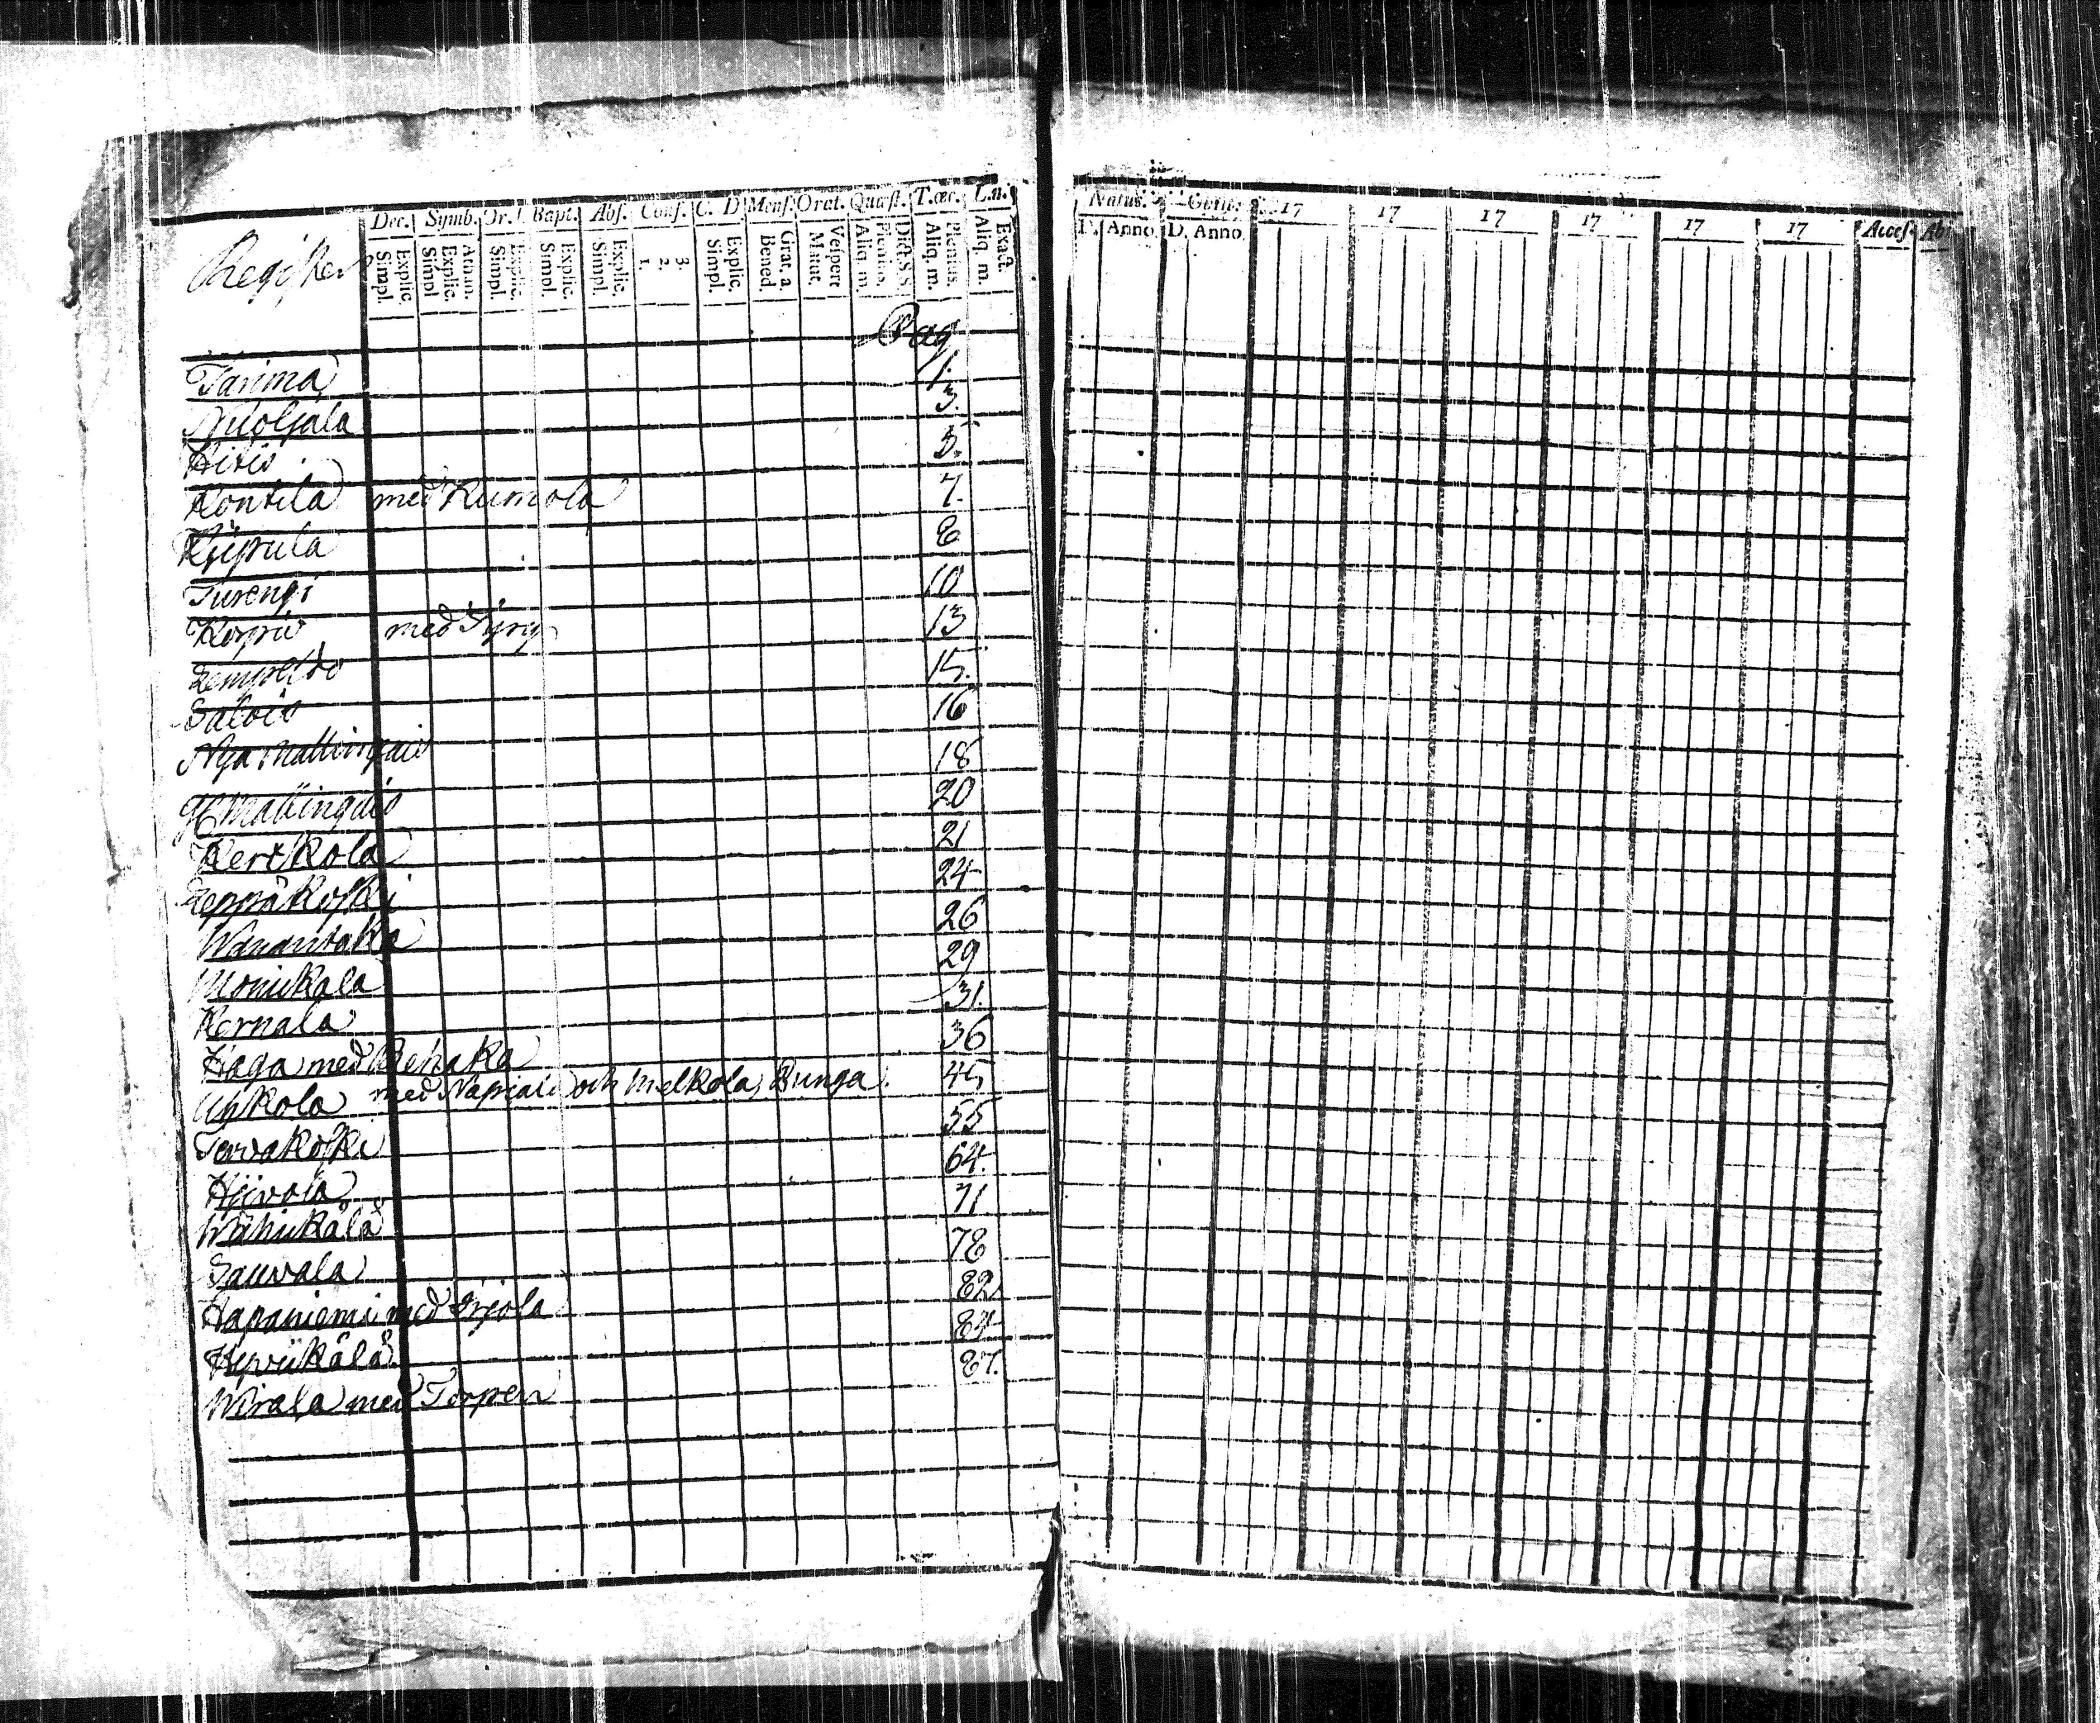 Dec. Symb. Or. Bapt. Abs. Conf. C. D. Mens. Orat. Quæst. T. œc. L. n.
Register Explic. Simpl. Athan. Explic. Simpl Explic. Simpl. Explic. Simpl. Explic. Simpl. 3. 2. 1. Explic. Simpl. Grat. a. Bened. Vespere Matut. Dict. S. S. Plenius. Aliq. m. Plenius. Aliq. m. Exact. Aliq. m.
Pag
Tarima 1.
Nuoliala 3.
Hitis 5.
Kontila med Rumola 7.
Kiipula 8
Turengi 10
13
15.
Salois 16
Nya Mallinguis 18
Gl Mallinguis 20
Kerkkola 21
Leppäkoski 24
Wanantaka 26
Monikala 29
Kernala 31.
Haga med Rehaka 36
Uhkola med Napiala och Melkola, Bunga. 45
Tervakoski 55
Hijvola 64.
Wähikälä 71
Sauvala 78
Hapaniemi med Irjola 82
Hyvikälä 84
Wirala med Torpen 87.
Natus. 17 17 17 17 17 17 Access. Abi
D. Anno D. Anno